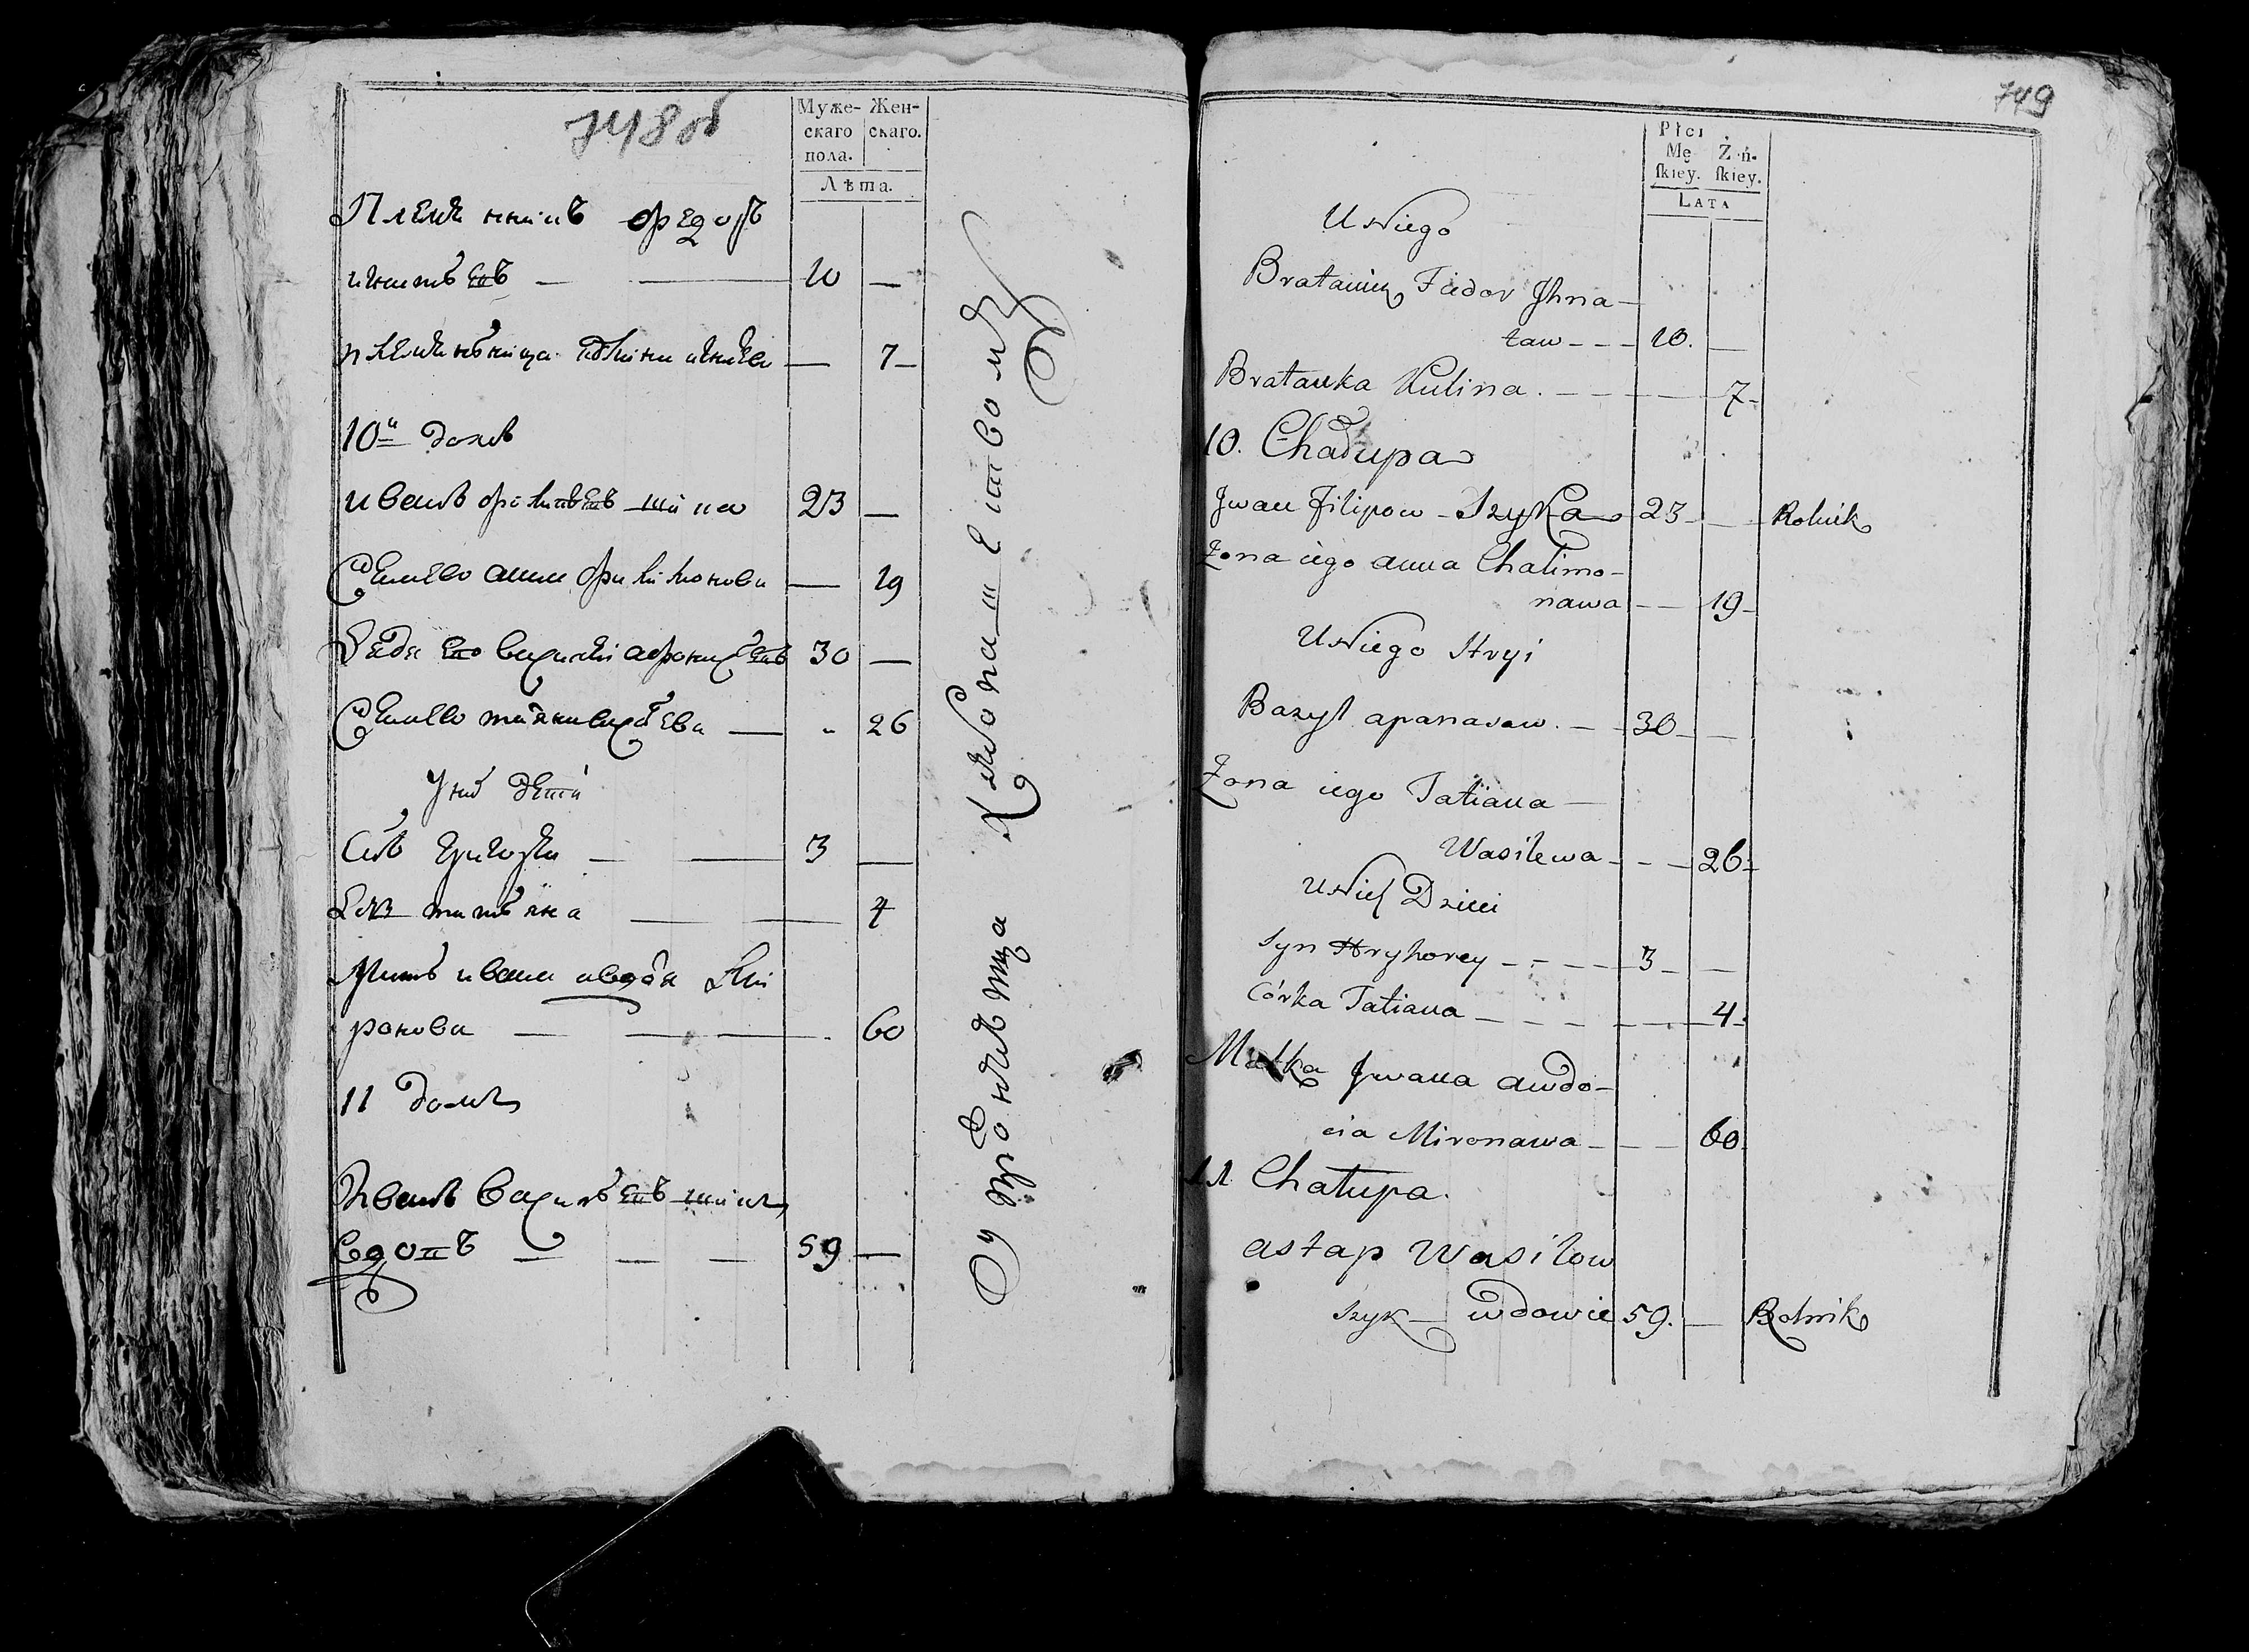 748об
Муже- Жен-
скаго скаго.
пола.
Лѣта.
Племянникъ Федоръ
игнатъевъ — 10 —
племянъница игнатьева — 7
10й домъ
Иванъ филиповъ шика 23 —
жена его анна филимонова — 19
дядя его василий афонасъевъ 30 —
жена его татяна василъева — " 26
У них дети
Сынъ григорей — 3 —
дочь татъяна — 4
Мать ивана авдотя Ми
ронова — 60
11 домъ
Иванъ василъевъ шикъ
вдовъ — 59 —
749
Płci
Mę Żeń-
ſkiey. ſkiey.
LATA
U Niego
Bratanek Fiedor Jhna-
taw - - - 10. —
Bratanka Kulina. - - - 7-
10. Chałupa
Jwan Filipow - Szyka 23 - — Rolnik
Żona iego anna Chalimo-
nawa - - 19-
U Niego Stryi
Bazyl apanasaw. - - 30 - —
Żona iego Tatiana —
Wasilewa - - - 26-
U Nich Dzieci
Syn Hryhorey - - - - 3 - —
Córka Tatiana - - - - 4.
Matka Jwana awdo-
cia Mironawa - - - 60.
11 Chałupa.
astap Wasilow
Szyk — wdowie 59. — Rolnik